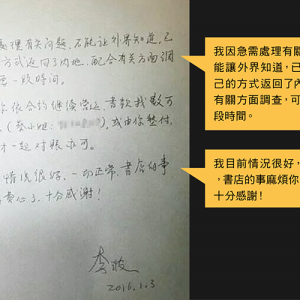 處理有关问题,不能让外界知道,已
方式返回了内地,配合有关方面調
一段时间。
(蔡小姐: 或由你墊付,
一起对賬亦可。
情况很好,一切正常,書店的事
費心了,十分感謝!
李波
2016.1.3
我因急需處理有關
能讓外界知道,已
己的方式返回了內
有關方面調查,可
段時間。
我目前情況很好,
,書店的事麻煩你
十分感謝!